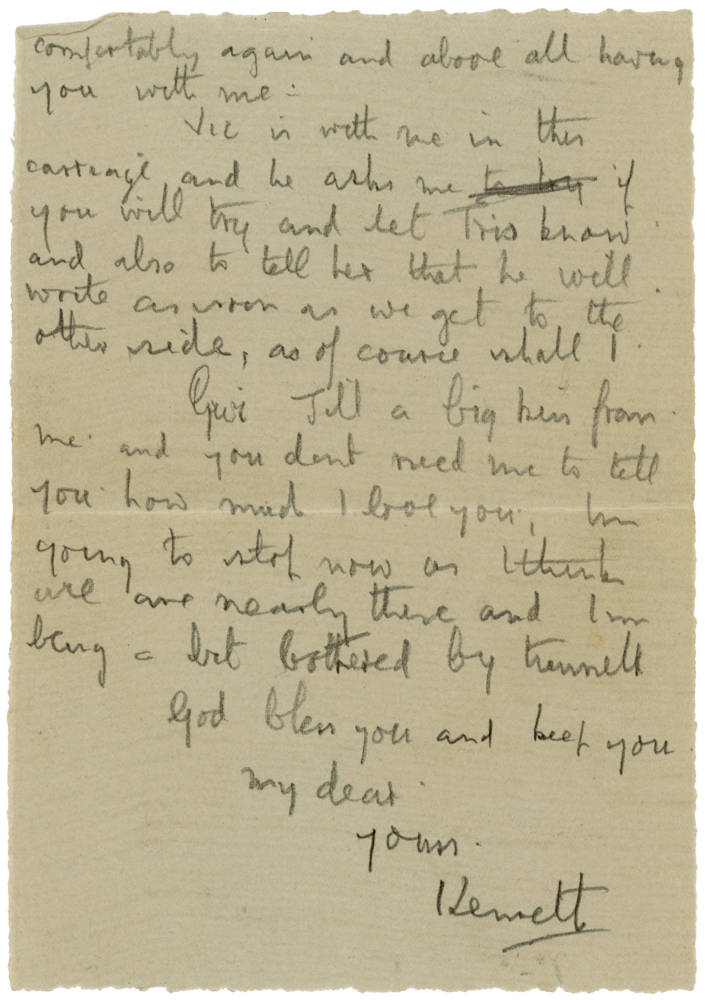 comfortably again and above all having
you with me -
Vic is with me in this
carriage and he asks me to try if
you will try and let Tris know
and also to tell her that he will
write as soon as we get to the
other side, as of course shall I.
Give Jill a big kiss from
me and you dont need me to tell
you how much I love you, Im
going to stop now as I think
we are nearly there and Im
being a bit bothered by tunnels
God bless you and keep you
my dear.
yours.